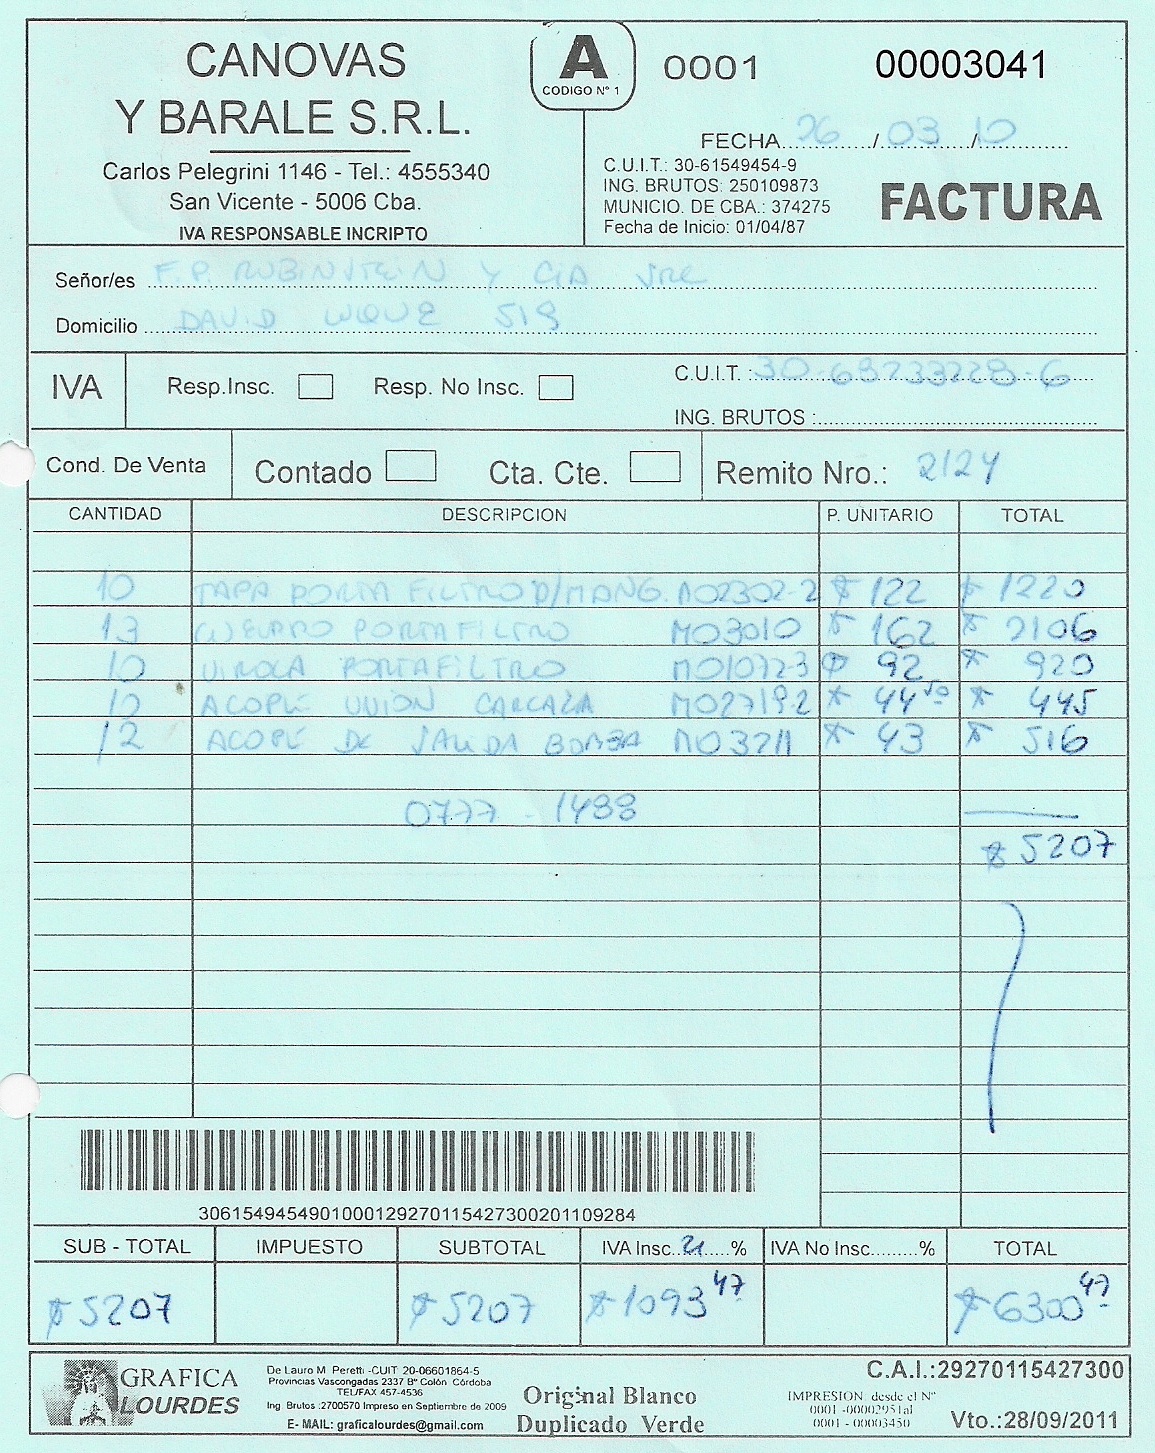 CANOVAS
Y BARALE S.R.L.
Carlos Pelegrini 1146 - Tel.: 4555340
San Vicente - 5006 Cba.
IVA RESPONSABLE INCRIPTO
A
CODIGO N° 1
0001 00003041
FECHA 26 / 03 / 10
C.U.I.T.: 30-61549454-9
ING. BRUTOS: 250109873
MUNICIO. DE CBA.: 374275
Fecha de Inicio: 01/04/87
FACTURA
Señor/es F.P. RUBINSTEIN Y CIA SRL
Domicilio DAVID LUQUE 519
IVA Resp.Insc. Resp. No Insc. C.U.I.T. : 30-68233228-6
ING. BRUTOS :
Cond. De Venta Contado Cta. Cte. Remito Nro.: 2124
CANTIDAD DESCRIPCION P. UNITARIO TOTAL
10 TAPA PORTA FILTRO P/MANG. M02302-2 $ 122 $ 1220
13 CUERPO PORTAFILTRO M03010 $ 162 $ 2106
10 VIROLA PORTAFILTRO M01072-3 $ 92 $ 920
10 ACOPLE UNION CARCAZA M02719-2 $ 44,50 $ 445
12 ACOPLE DE SALIDA BOMBA M03211 $ 43 $ 516
0777 - 1488
$ 5207
3061549454901000129270115427300201109284
SUB - TOTAL IMPUESTO SUBTOTAL IVA Insc. 21 % IVA No Insc. % TOTAL
$ 5207 $ 5207 $ 1093 47 $ 6300 47
GRAFICA
LOURDES
De Lauro M. Peretti -CUIT 20-06601864-5
Provincias Vascongadas 2337 B° Colón Córdoba
TEL/FAX 457-4536
Ing. Brutos :2700570 Impreso en Septiembre de 2009
E- MAIL: graficalourdes@gmail.com
Original Blanco
Duplicado Verde
C.A.I.:29270115427300
IMPRESION: desde el N°
0001 -00002951al
0001 - 00003450
Vto.:28/09/2011